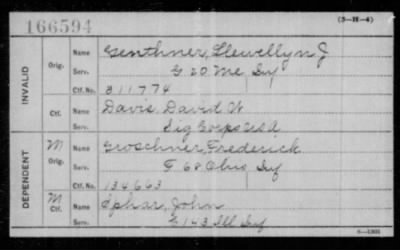 166594
(3-H-4)
INVALID
Orig.
Name Genthner, Llewellyn J
Serv. G 20 Me Inf
Ctf. No. 811774
Ctf.
Name Davis, David W
Serv. Sig Corps USA
DEPENDENT
M
Orig.
Name Groschner, Frederick
Serv. F 68 Ohio Inf
Ctf. No. 134663
M
Ctf.
Name Sphar, John
Serv. G 143 Ill Inf
6—1301